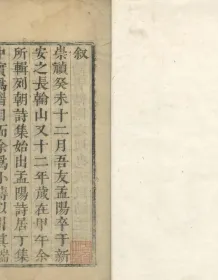 叙
崇禎癸未十二月吾友孟陽卒于新
安之長翰山又十二年歲在甲午余
所輯列朝詩集始出孟陽詩居丁集
中實爲目而爲小傳其端